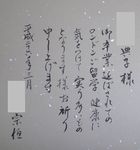 典子様
御卒業なされての
ロンドンご留学 健康に
気をつけて実りあるもの
となります様お祈り
申し上げます
平成十六年三月
宗恒